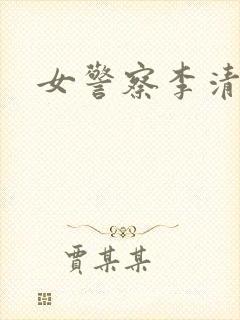 女警察李清
賈某某